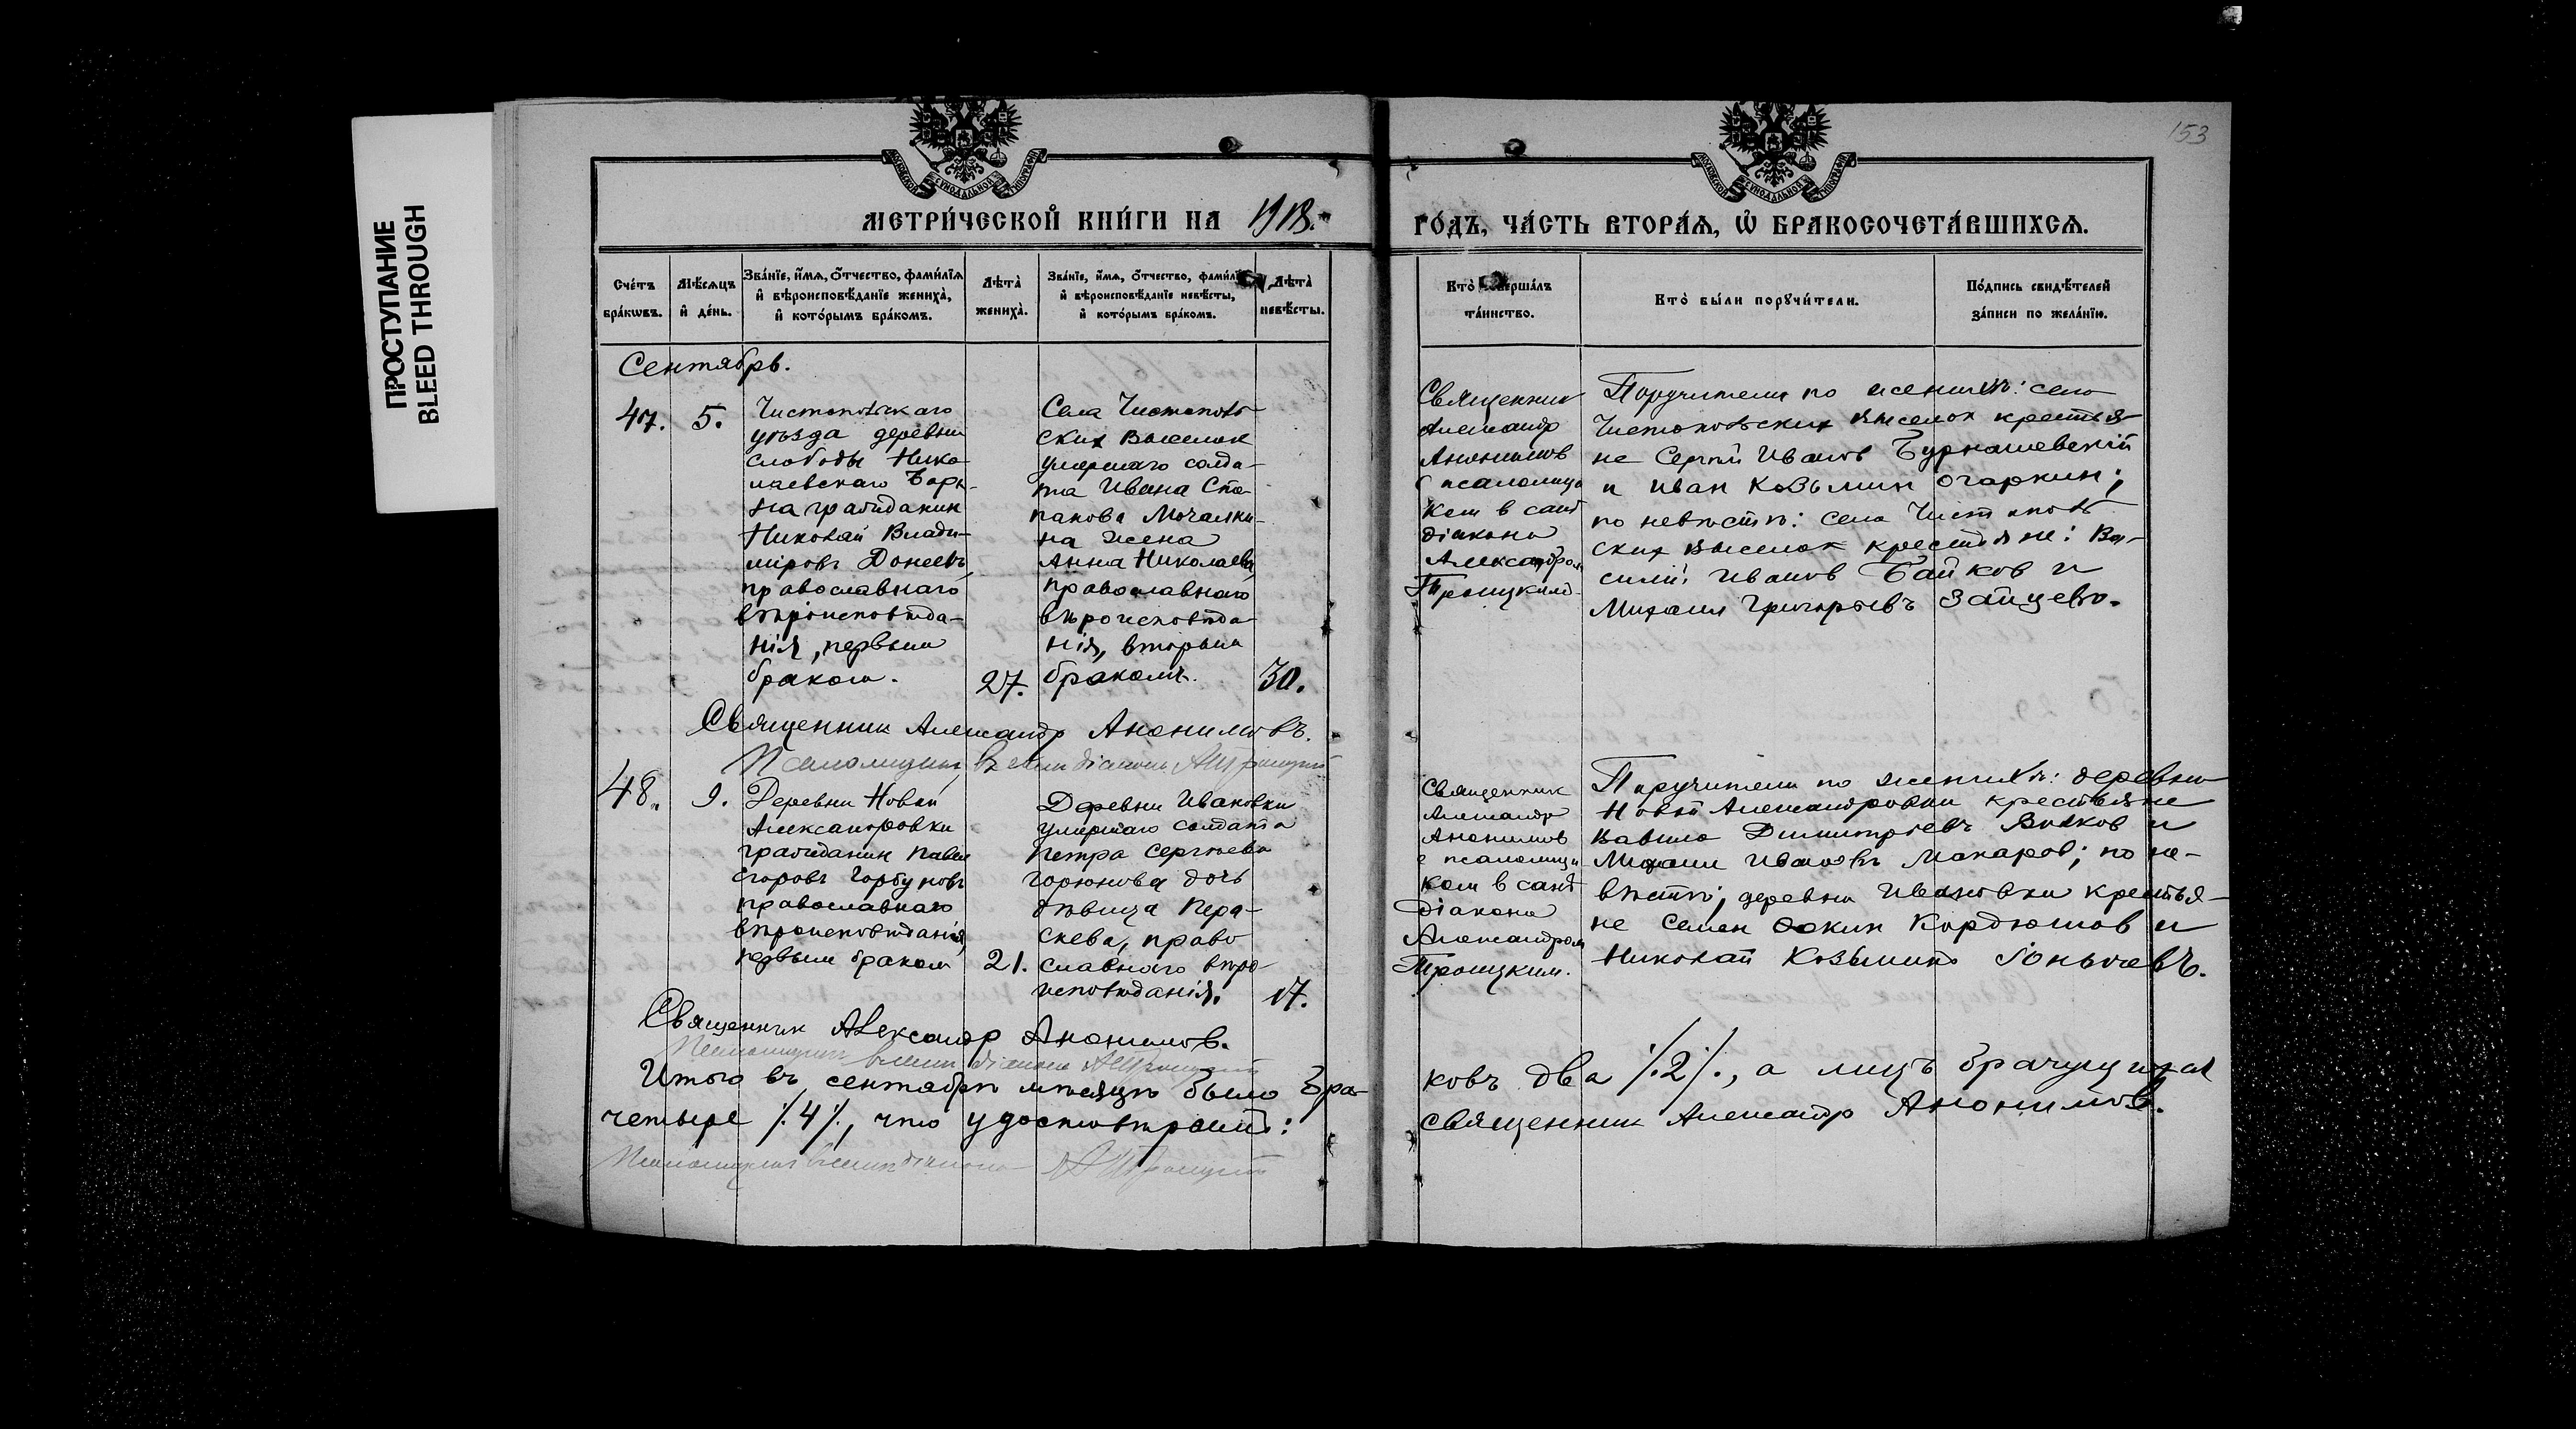 ПРОСТУПАНИЕ
BLEED THROUGH
153
МОСКОВСКОЙ СѴНОДАЛЬНОЙ ТИПОГРАФІИ
МОСКОВСКОЙ СѴНОДАЛЬНОЙ ТИПОГРАФІИ
МЕТРИ́ЧЕСКОЙ КНИ́ГИ НА 1918.
ГО́ДЪ, ЧА́СТЬ ВТОРА́Я, Ѡ БРАКОСОЧЕТА́ВШИХСЯ.
Сче́тъ
бра́кѡвъ.
Мѣ́сяцъ
и҆ де́нь.
Зва́нїе, и҆́мя, ѻ҆́тчество, фами́лїя
и҆ вѣроисповѣ́данїе жениха̀,
и҆ кото́рымъ бра́комъ.
Лѣта̀
жениха̀.
Зва́нїе, и҆́мя, ѻ҆́тчество, фами́лїя
и҆ вѣроисповѣ́данїе невѣ́сты,
и҆ кото́рымъ бра́комъ.
Лѣта̀
невѣ́сты.
Кто̀ соверша́лъ
та́инство.
Кто̀ бы́ли порꙋчи́тели.
По́дпись свидѣ́телей
за́писи по жела́нїю.
Сентябрь.
47.
5.
Чистопольскаго
уѣзда деревни
слободы Нико-
лаевскаго
гражданин
Николай Влади-
міровъ Донеевъ,
православнаго
вѣроисповѣда-
нія, первым
браком.
27.
Села Чистополь-
ских Выселок
умершаго солда-
та Ивана Сте-
панова Мочалки-
на жена
Анна Николаева,
православнаго
вѣроисповѣда-
нія, вторым
бракомъ.
30.
Священник
Александр
Анонимов
с псаломщи
ком в санѣ
діакона
Александром
Троицким
Поручители по женихѣ: села
Чистопольских выселок крестья-
не Сергей Иванов Бурнашевскій
и Иван Козьмин Огаркин;
по невѣстѣ: села Чистополь
ских выселок крестьяне: Ва-
силий Иванов Байков и
Михаил Григорьевъ Зайцевъ.
Священник Александр Анонимовъ.
Псаломщик в санѣ діакона А Троицкій
48.
9.
Деревни Новой
Александровки
гражданин Павел
Егоровъ Горбуновъ
православнаго
вѣроисповѣданія,
первым браком
21.
Деревни Ивановки
умершаго солдата
Петра Сергѣева
Горюнова дочь
дѣвица Пера-
скева, право
славнаго вѣро-
исповѣданія.
17.
Священник
Александр
Анонимов
с псаломщи
ком в санѣ
діакона
Александром
Троицким.
Поручители по женихѣ: деревни
Новой Александровки крестьяне
Вавила Димитріевъ Волков и
Михаил Ивановъ Макаров; по не-
вѣстѣ; деревни Ивановки крестья-
не Семен Кордюшов и
Николай Козьмин
Священник Александр Анонимов.
Псаломщик в санѣ діакона А Троицкій
Итого въ сентябрѣ мѣсяцѣ было Бра-
ковъ два /.2/., а лицъ брачущихся
четыре /.4/., что удостовѣряют:
священник Александр Анонимов.
Псаломщик в санѣ діакона А Троицкій